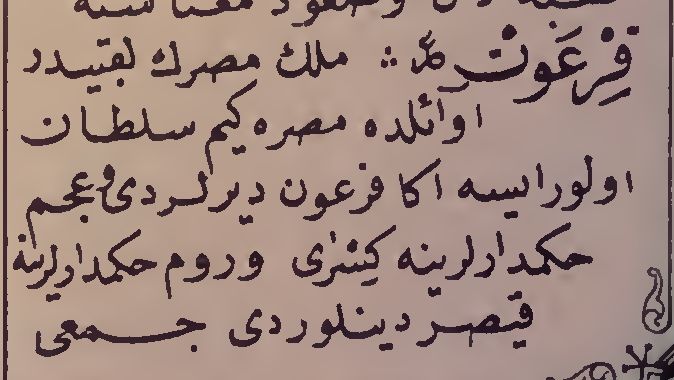 فِرْعَونْ ملك مصرك لقبيدر
اوائلده مصره كيم سلطان
اولورايسه اكا فرعون ديرلردى وعجم
حكمدارلرينه كِسْرٰى وروم حكمدارلرينه
قيصر دينلوردى جمعى